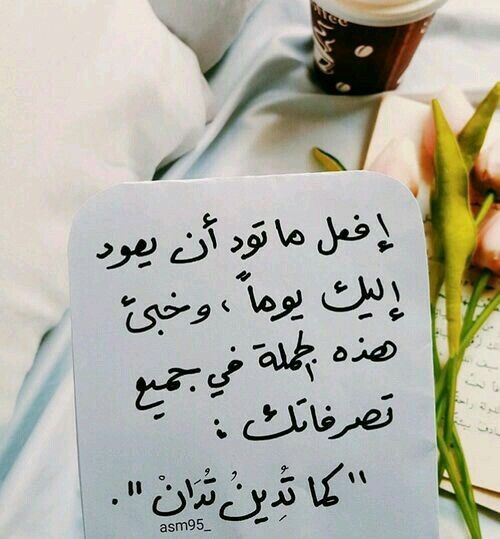 إفعل ما تود أن يعود
إليك يوماً ، وخبئ
هذه الجملة في جميع
تصرفاتك :
"كما تُدِينُ تُدَانْ" .
asm95_